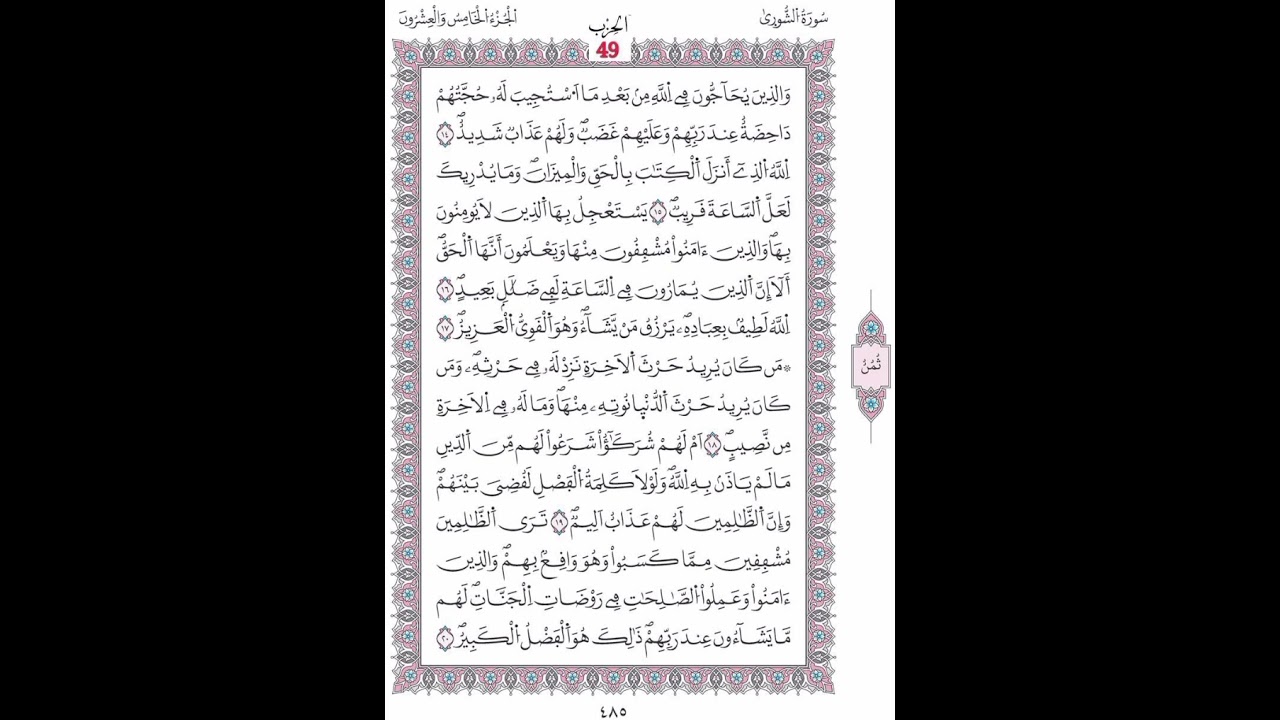 سُورَةُ الشُّورىٰ
الحِزْب
49
الجُزْءُ الخَامِسُ وَالْعِشْرُونَ
وَالذِينَ يُحَآجُّونَ فِے اِ۬للَّهِ مِنۢ بَعْدِ مَا اَ۟سْتُجِيبَ لَهُۥ حُجَّتُهُمْ
دَاحِضَةٌ عِندَ رَبِّهِمْ وَعَلَيْهِمْ غَضَبٞۖ وَلَهُمْ عَذَابٞ شَدِيدٌۖ ١٤
اِ۬للَّهُ اُ۬لذِےٓ أَنزَلَ اَ۬لْكِتَٰبَ بِالْحَقِّ وَالْمِيزَانَۖ وَمَا يُدْرِيكَ
لَعَلَّ اَ۬لسَّاعَةَ قَرِيبٞۖ ١٥ يَسْتَعْجِلُ بِهَا اَ۬لذِينَ لَا يُومِنُونَ
بِهَاۖ وَالذِينَ ءَامَنُواْ مُشْفِقُونَ مِنْهَا وَيَعْلَمُونَ أَنَّهَا اَ۬لْحَقُّۖ
أَلَآ إِنَّ اَ۬لذِينَ يُمَارُونَ فِے اِ۬لسَّاعَةِ لَفِے ضَلَٰلِۢ بَعِيدٍۖ ١٦
اِ۬للَّهُ لَطِيفُۢ بِعِبَادِهِۦ يَرْزُقُ مَنْ يَّشَآءُۖ وَهُوَ اَ۬لْقَوِيُّ اُ۬لْعَزِيزُۖ ١٧
۞مَن كَانَ يُرِيدُ حَرْثَ اَ۬لَاخِرَةِ نَزِدْ لَهُۥ فِے حَرْثِهِۦۖ وَمَن
كَانَ يُرِيدُ حَرْثَ اَ۬لدُّنْي۪ا نُوتِهِۦ مِنْهَاۖ وَمَا لَهُۥ فِے اِ۬لَاخِرَةِ
مِن نَّصِيبٍۖ ١٨ اَمْ لَهُمْ شُرَكَٰٓؤُاْ شَرَعُواْ لَهُم مِّنَ اَ۬لدِّينِ
مَا لَمْ يَاذَنۢ بِهِ اِ۬للَّهُۖ وَلَوْلَا كَلِمَةُ اُ۬لْفَصْلِ لَقُضِيَ بَيْنَهُمْۖ
وَإِنَّ اَ۬لظَّٰلِمِينَ لَهُمْ عَذَابٌ اَلِيمٞۖ ١٩ تَرَى اَ۬لظَّٰلِمِينَ
مُشْفِقِينَ مِمَّا كَسَبُواْ وَهُوَ وَاقِعُۢ بِهِمْۖ وَالذِينَ
ءَامَنُواْ وَعَمِلُواْ اُ۬لصَّٰلِحَٰتِ فِے رَوْضَاتِ اِ۬لْجَنَّاتِۖ لَهُم
مَّا يَشَآءُونَ عِندَ رَبِّهِمْۖ ذَٰلِكَ هُوَ اَ۬لْفَضْلُ اُ۬لْكَبِيرُۖ ٢٠
ثُمُنُ
٤٨٥